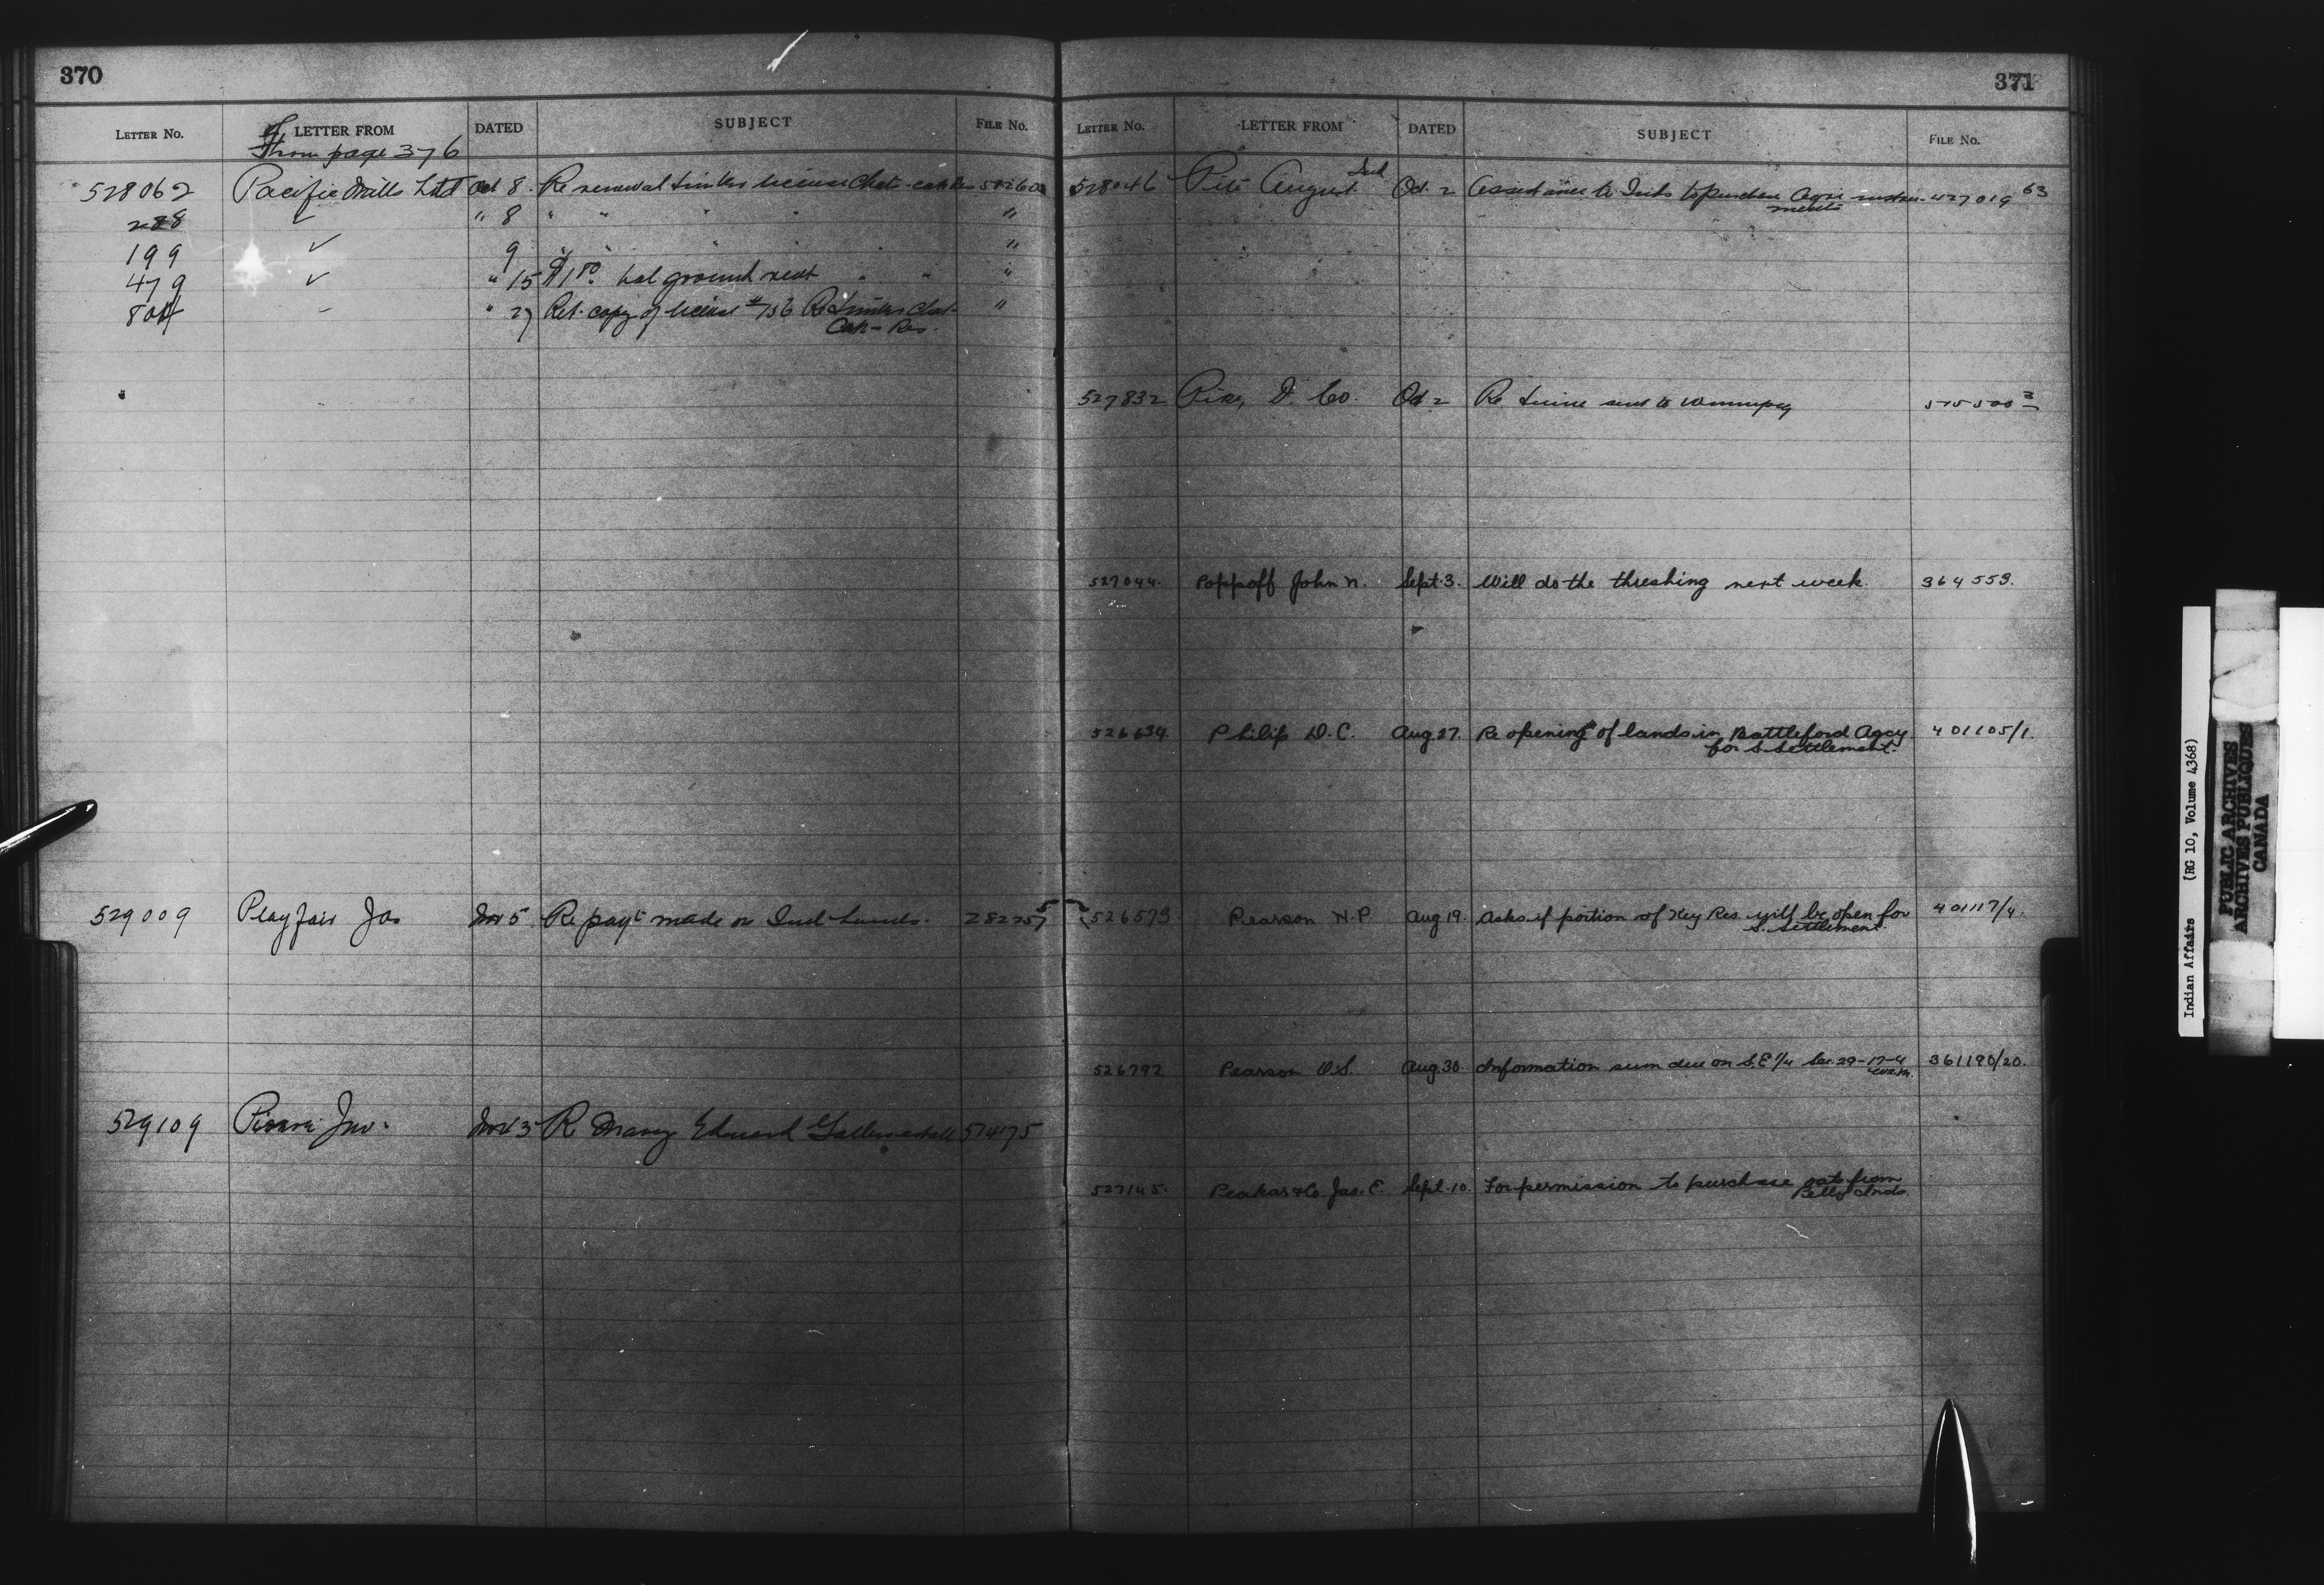 370
LETTER NO. LETTER FROM DATED SUBJECT FILE No.
From page 376
528062 Pacific Mills Ltd Oct 8 Re renewal timber license 
288 " 8 " " " " "
199 9 " " " " "
479 " 15 bal ground rent " " "
804 " 27 Ret. copy of license Re timber "
Res.
529009 Playfair Jas Nov 5 Re payt made on Ind Lands. 
529109 Jno. Nov 3 Re Edward 514175
371
LETTER NO. LETTER FROM DATED SUBJECT FILE No.
528046 August Ind Oct. 2 Assistance to Inds to purchase Agri 427019 63
ments
527832 D. Co. Oct 2 Re twine sent to Winnipeg
527044. Poppoff John N. Sept. 3. Will do the threshing next week. 364559.
526634 Philip D.C. Aug. 27. Re opening of lands in Battleford Agcy 401105/1.
for S. Settlement.
526573 Pearson N.P. Aug 19. Asks if portion of Key Res. will be open for 401117/4.
S. Settlement.
526792 Pearson O.S. Aug. 30 Information sum due on S.E 1/4 Sec. 29-17-4 361190/20.
527145. Jas. E. Sept. 10. For permission to purchase oats from
Pelly Inds.
Indian Affairs (RG 10, Volume 4368)
PUBLIC ARCHIVES
ARCHIVES PUBLIQUES
CANADA